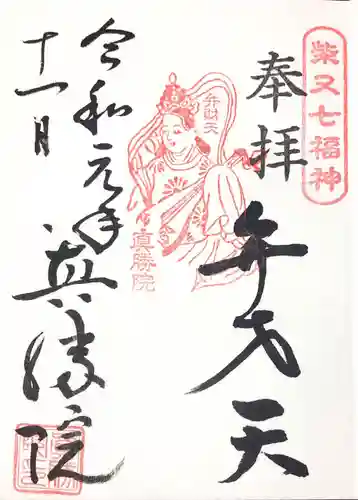 柴又七福神
奉拝
弁才天
弁財天
真勝院
令和元年
十一月
真勝院